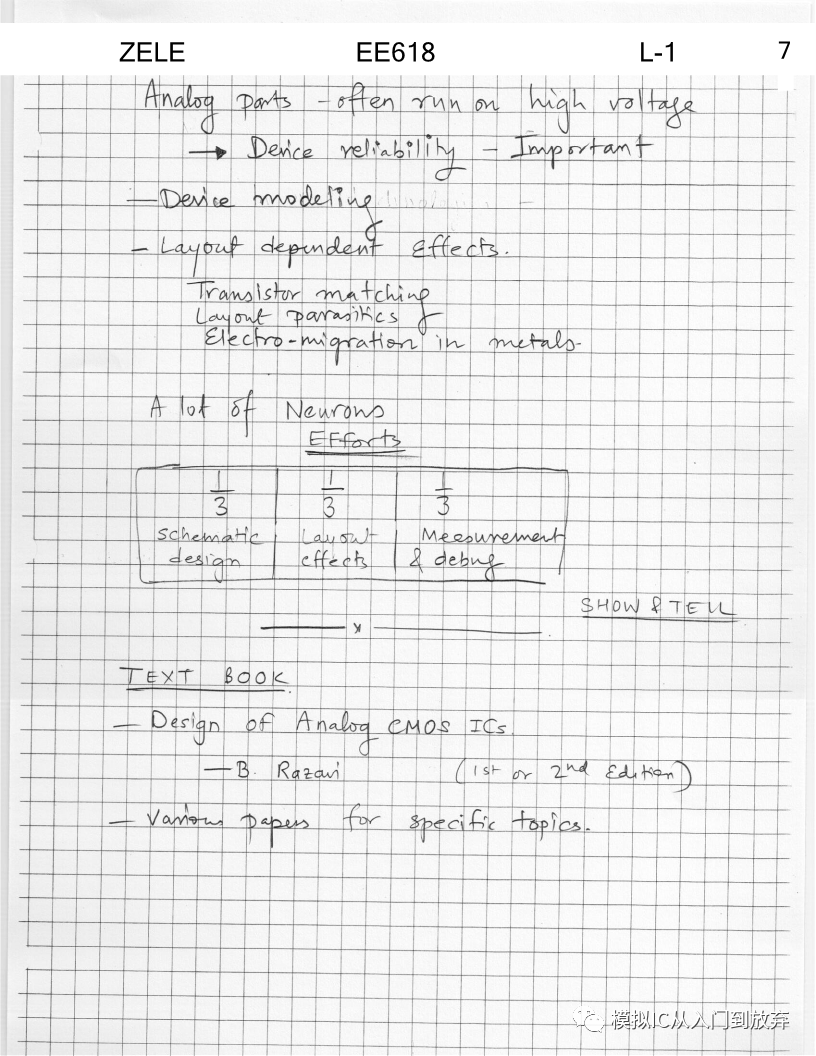 ZELE EE618 L-1 7
Analog parts - often run on high voltage
→ Device reliability - Important
- Device modeling
- Layout dependent Effects.
Transistor matching
Layout parasitics
Electro-migration in metals.
A lot of Neurons
EFforts
1/3 1/3 1/3
schematic Layout Measurement
design effects & debug
SHOW & TELL
x
TEXT BOOK
- Design of Analog CMOS ICs.
- B. Razavi (1st or 2nd Edition)
- Various papers for specific topics.
模拟IC从入门到放弃